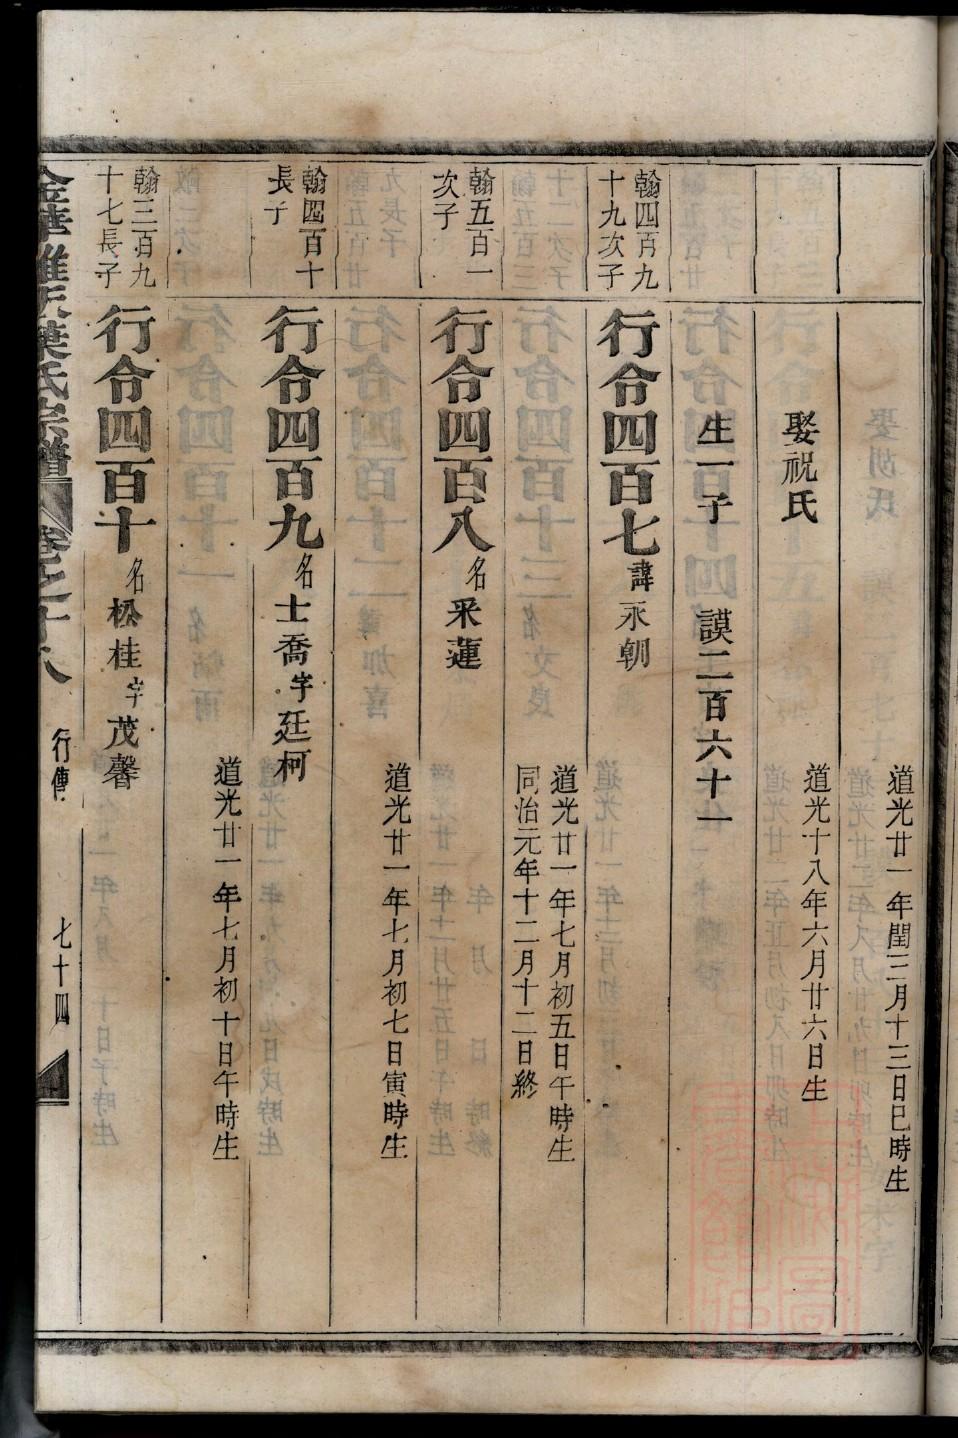 道光廿一年閏三月十三日巳時生
娶祝氏
道光十八年六月廿六日生
生一子 謨二百六十一
翰四百九十九次子
行令四百七諱永朝
道光廿一年七月初五日午時生
同治元年十二月十二日終
翰五百一次子
行令四百八名采蓮
道光廿一年七月初七日寅時生
翰四百十長子
行令四百九名士喬字廷柯
道光廿一年七月初十日午時生
翰三百九十七長子
行令四百十名松桂字茂馨
金華 葉氏宗譜 卷之十八 行傳 七十四